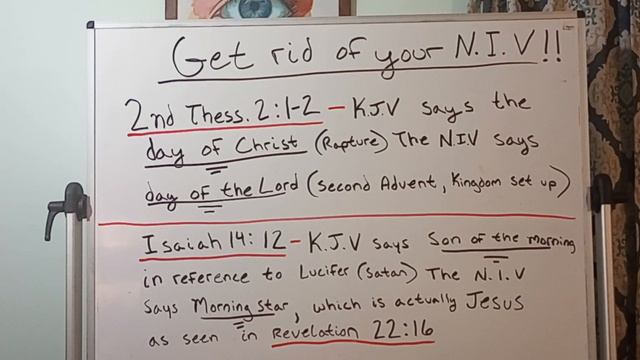 Get rid of your N.I.V!!
2nd Thess. 2:1-2 - KJV says the
day of Christ (Rapture) The NIV says
day of the Lord (Second Advent, Kingdom set up)
Isaiah 14:12 - K.J.V says Son of the morning
in reference to Lucifer (Satan) The N.I.V
says Morning star, which is actually Jesus
as seen in Revelation 22:16